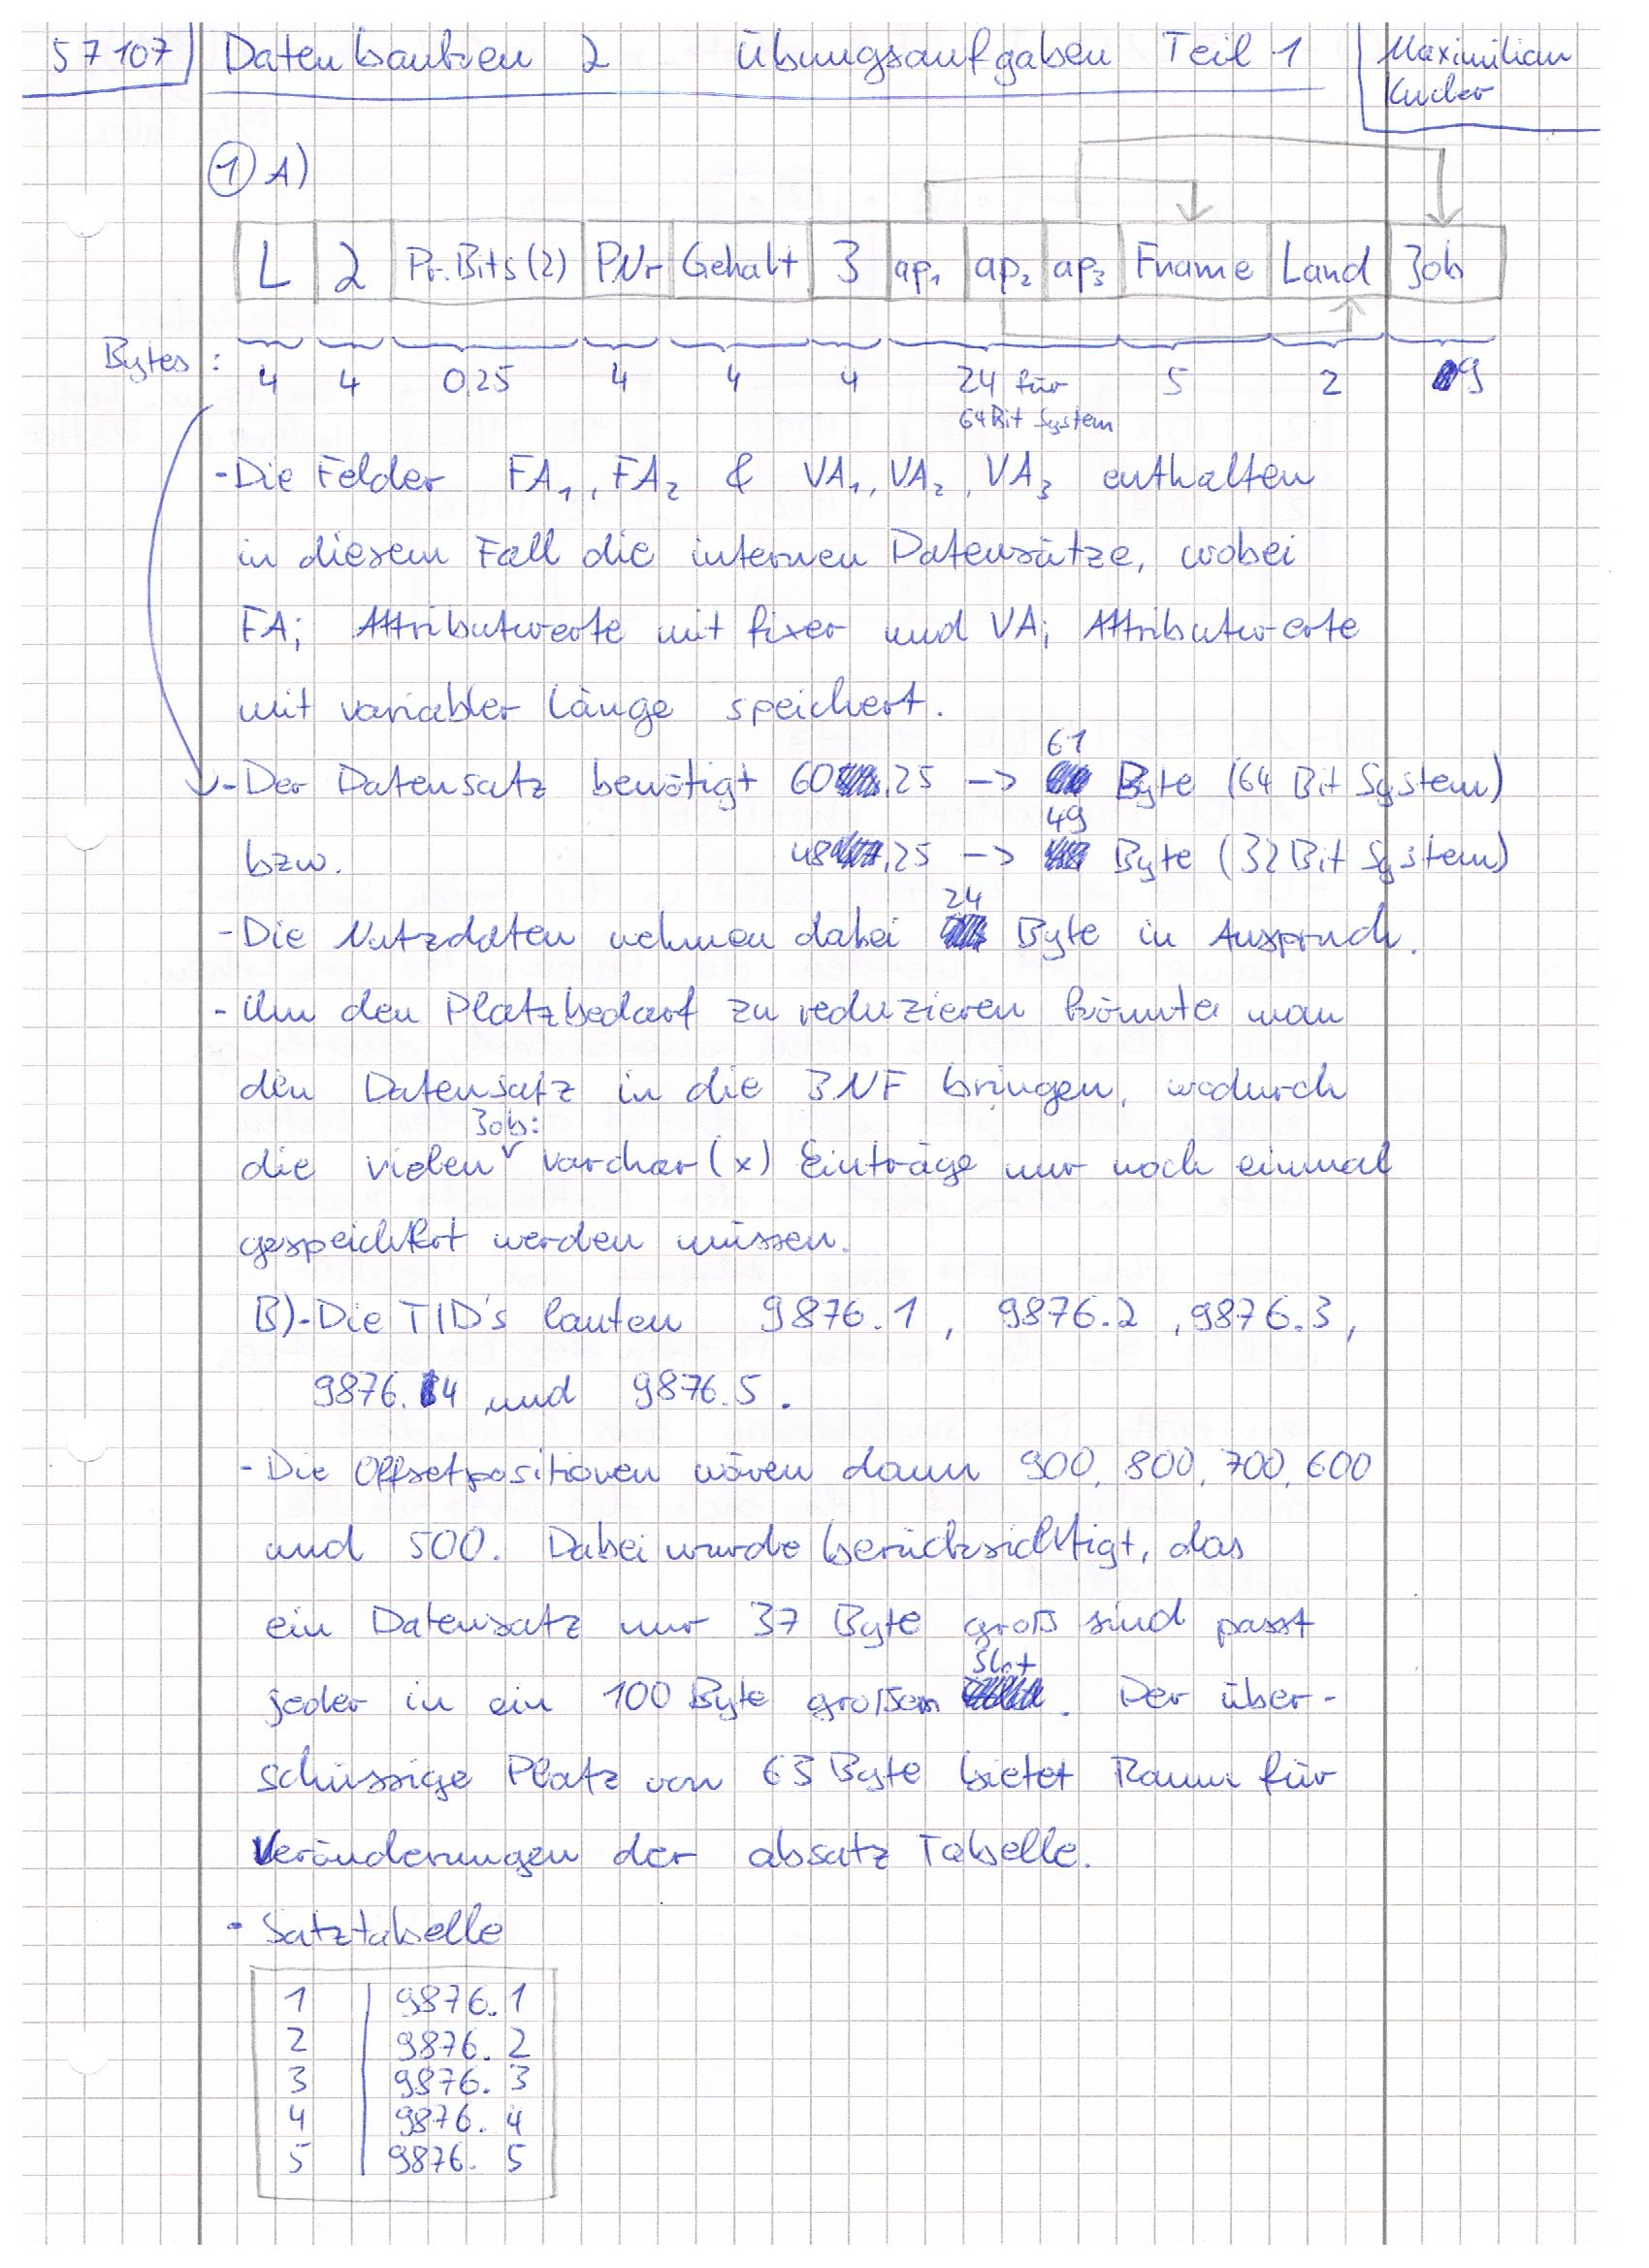 57107 Datenbanken 2 Übungsaufgaben Teil 1 Maximilian
① A)
L 2 Pr.Bits(2) PNr Gehalt 3 ap1 ap2 ap3 Fname Land Job
Bytes: 4 4 0,25 4 4 4 24 für 5 2 9
64 Bit System
- Die Felder FA1, FA2 & VA1, VA2, VA3 enthalten
in diesem Fall die internen Datensätze, wobei
FAi Attributwerte mit fixer und VAi Attributwerte
mit variabler Länge speichert.
- Der Datensatz benötigt 60,25 -> 61 Byte (64 Bit System)
bzw. 48,25 -> 49 Byte (32 Bit System)
- Die Nutzdaten nehmen dabei 24 Byte in Anspruch.
- Um den Platzbedarf zu reduzieren könnte man
den Datensatz in die 3NF bringen, wodurch
die vielen Job: varchar(x) Einträge nur noch einmal
gespeichert werden müssen.
B) - Die TID's lauten 9876.1, 9876.2, 9876.3,
9876.4 und 9876.5.
- Die Offsetpositionen wären dann 900, 800, 700, 600
und 500. Dabei wurde berücksichtigt, das
ein Datensatz nur 37 Byte groß sind passt
jeder in ein 100 Byte großen Slot. Der über-
schüssige Platz von 63 Byte bietet Raum für
Veränderungen der absatz Tabelle.
- Satztabelle
1 | 9876.1
2 | 9876.2
3 | 9876.3
4 | 9876.4
5 | 9876.5